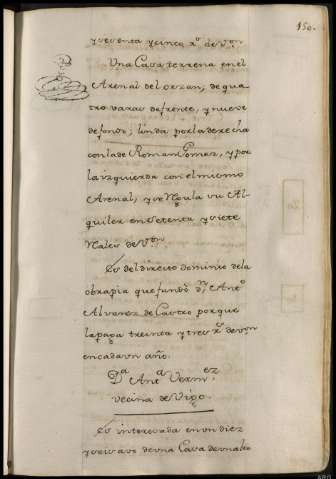 150.
y sesenta y cinco r.ˢ de v.ⁿ
Una Casa terrena en el
Arenal del orzan, de qua
tro varas de frente, y nueve
de fondo; linda por la derecha
con la de Roman Gomez, y por
la izquierda con el mismo
Arenal; y se Regula su Al-
quiler en Setenta y siete
Reales de V.ᵒⁿ
Es del directo dominio de la
obrapia que fundò D.ⁿ Ant.º
Alvarez de Castro porque
le paga treinta y tres r.ˢ de von
en cada un año.
D.ª Ant.ª Verm.ᵉᶻ
vecina de Vigo.
Es interesada en un diez
y seis avo de una Casa de un alto